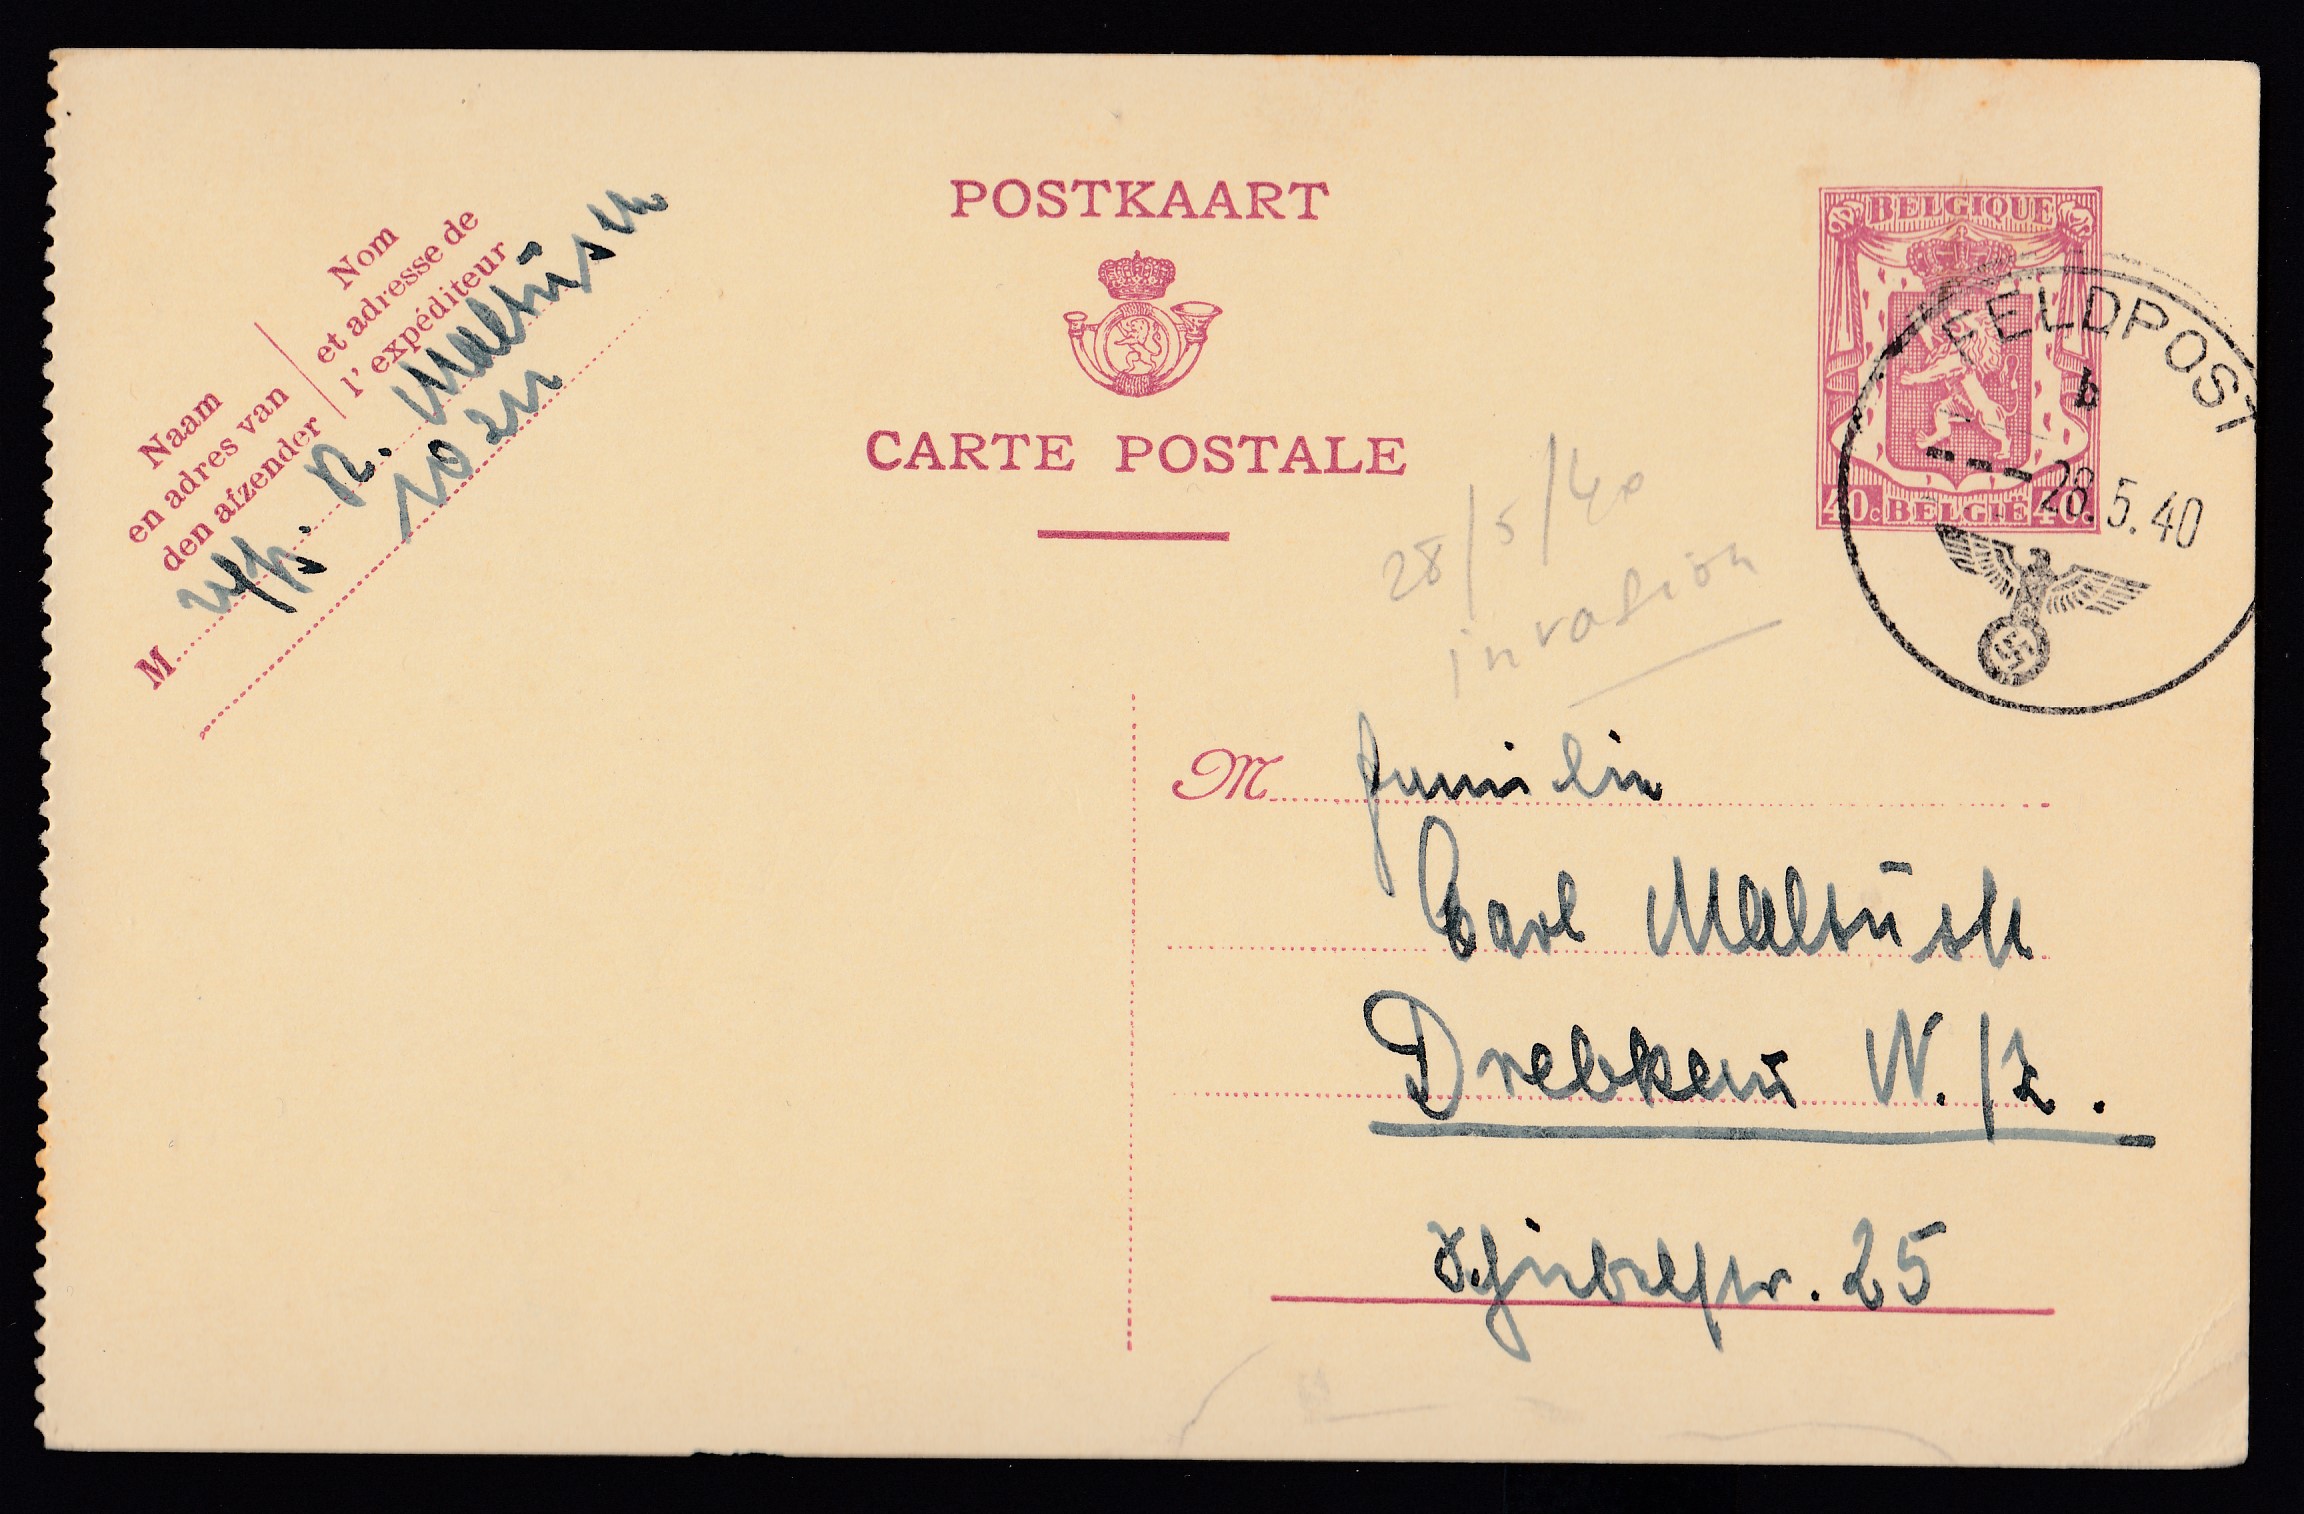 POSTKAART
CARTE POSTALE
Nom
et adresse de
l'expéditeur
Naam
en adres van
den afzender
M
Uffz. R.
BELGIQUE
40c BELGIË 40c
FELDPOST
b
28.5.40
28/5/40
invasion
M Familie
Carl
W./Z.
25